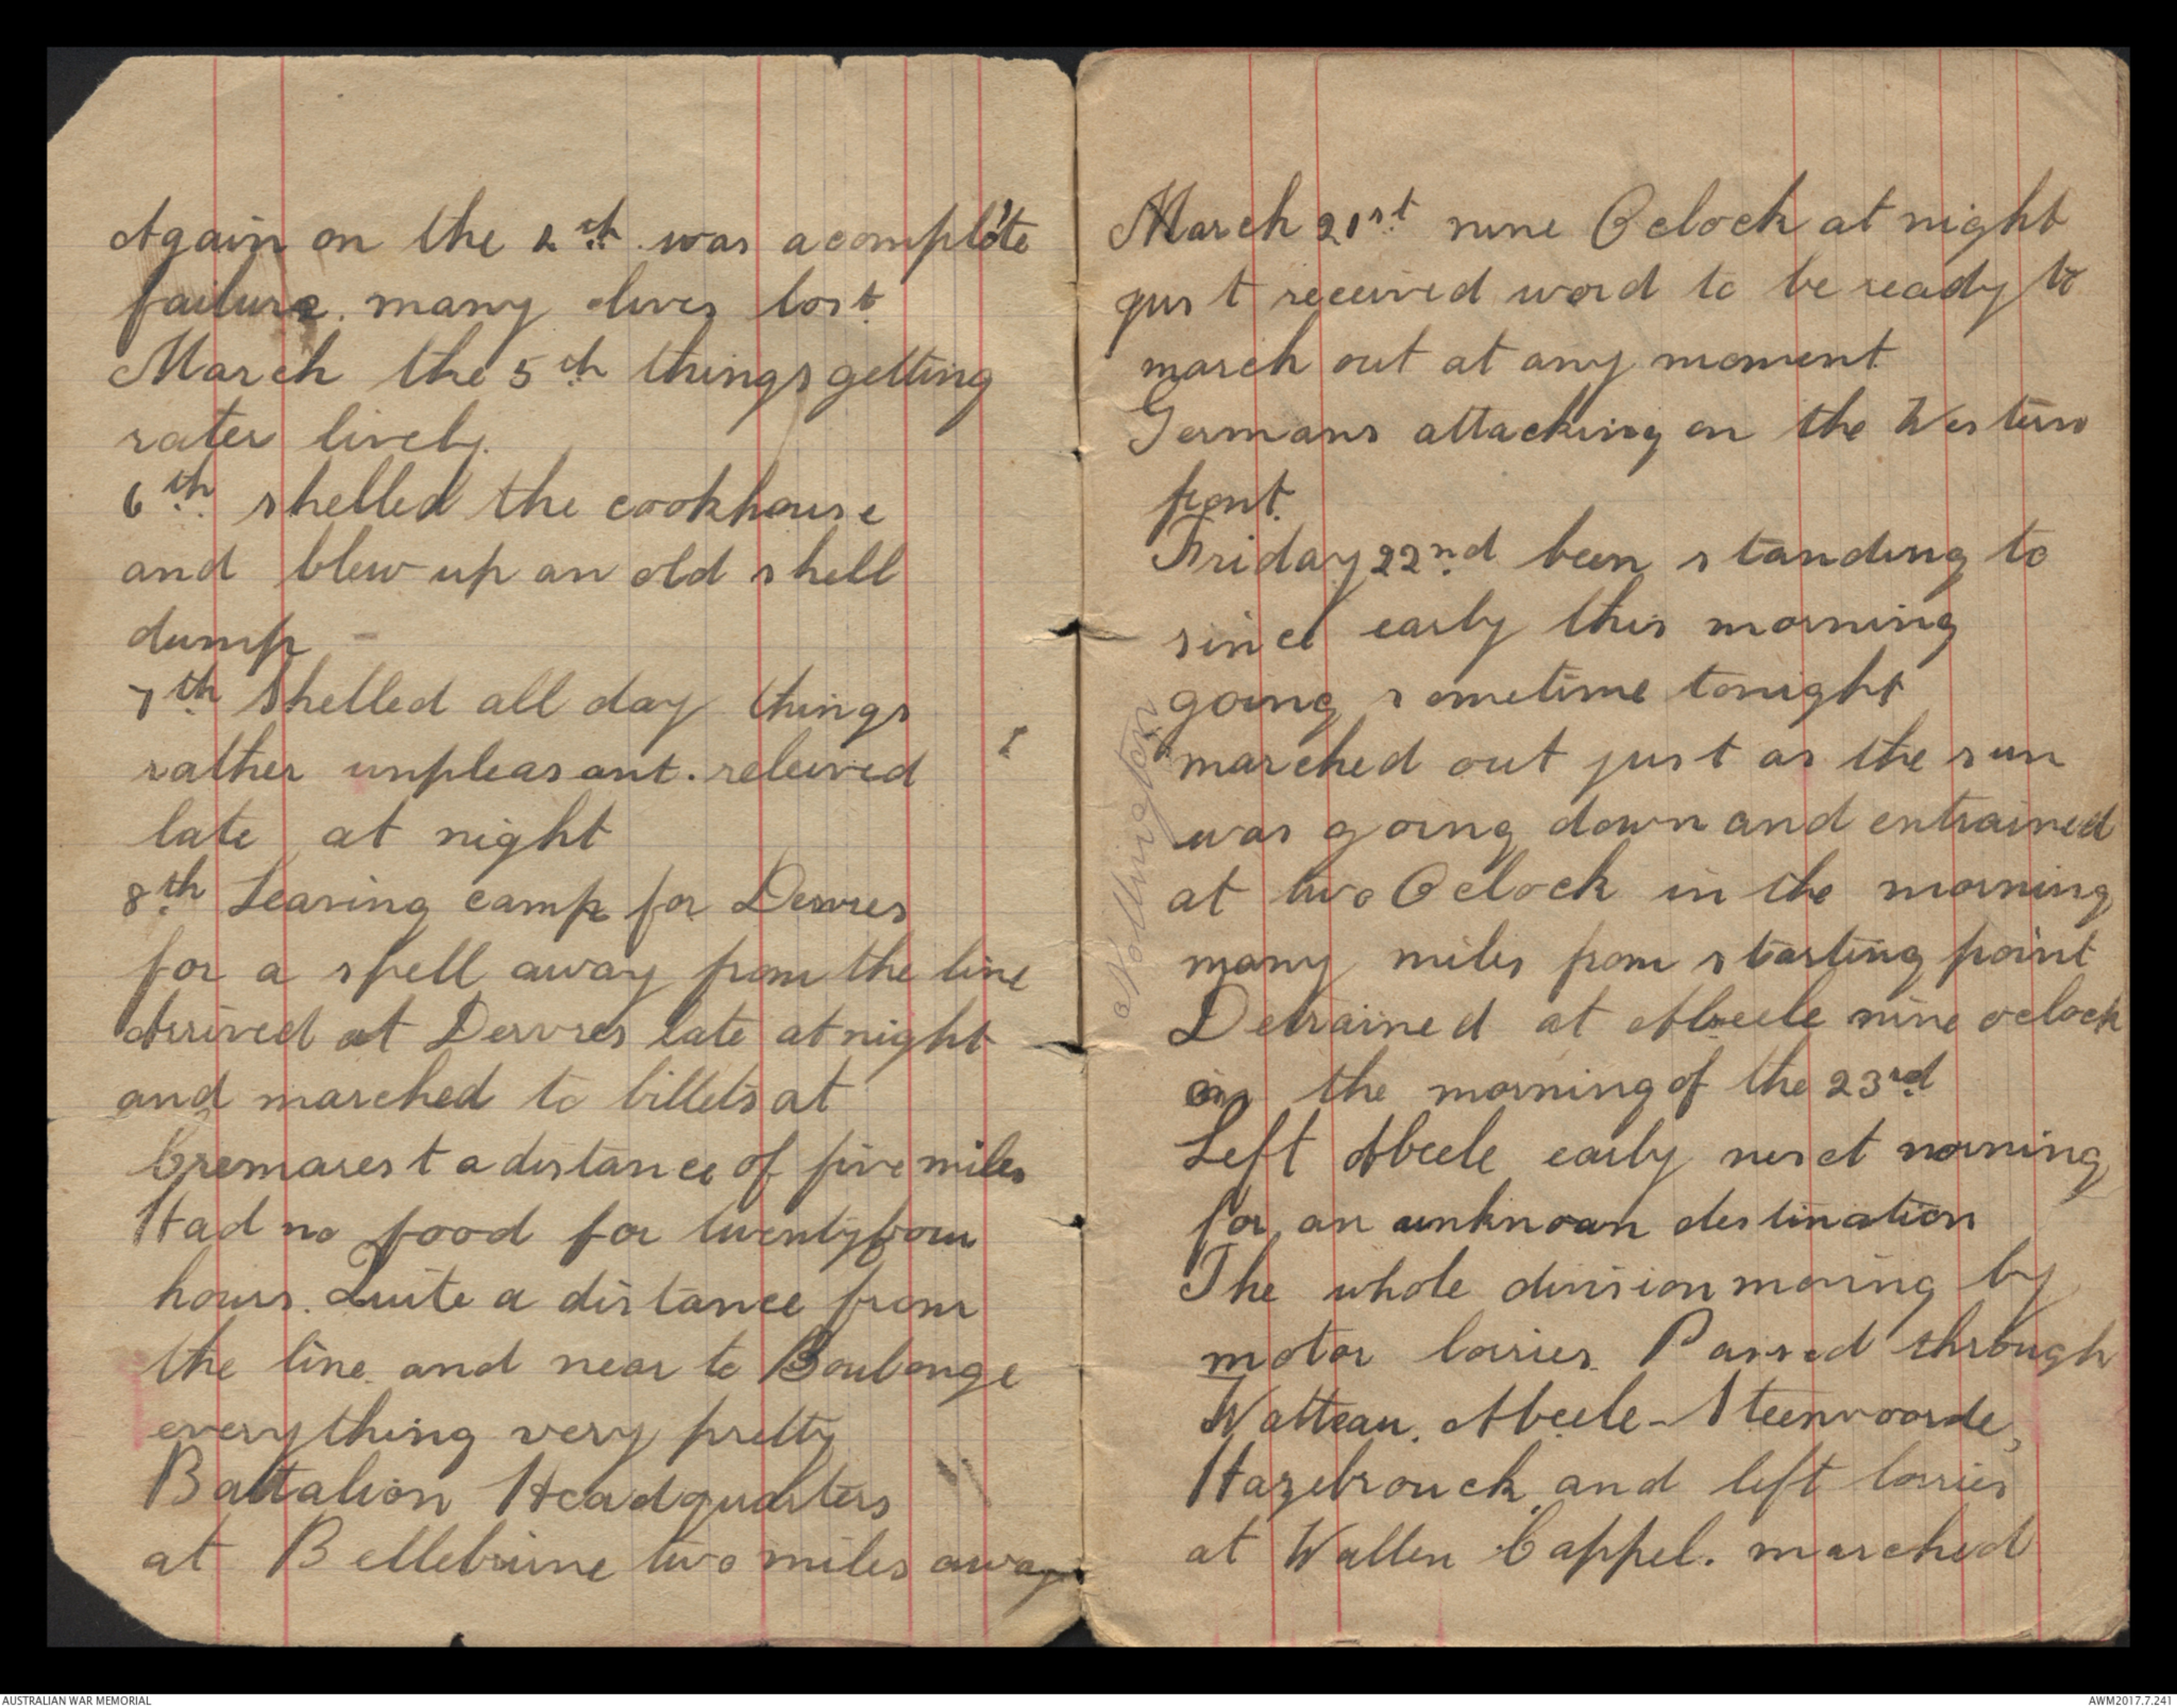 Again on the 4th was a complete
failure. many lives lost.
March the 5th things getting
rater lively.
6th shelled the cookhouse
and blew up an old shell
dump
7th Shelled all day things
rather unpleasant. releived
late at night
8th Leaving camp for Desvres
for a spell away from the line
Arrived at Desvres late at night
and marched to billets at
Cremarest a distance of five miles
Had no food for twentyfour
hours. Quite a distance from
the line and near to Boulonge
everything very pretty
Battalion Headquarters
at Bellebrune two miles away
March 21st nine Oclock at night
just received word to be ready to
march out at any moment
Germans attacking on the Western
front.
Friday 22nd been standing to
since early this morning
going sometime tonight
marched out just as the sun
was going down and entrained
at two Oclock in the morning
many miles from starting point
Detrained at Abeele nine oclock
in the morning of the 23rd
Left Abeele early next morning
for an unknoan destination
The whole division moving by
motor lorries. Passed through
Watteau. Abeele - Steenvoorde,
Hazebrouck and left lorries
at Wallen Cappel. marched
AUSTRALIAN WAR MEMORIAL
AWM2017.7.241